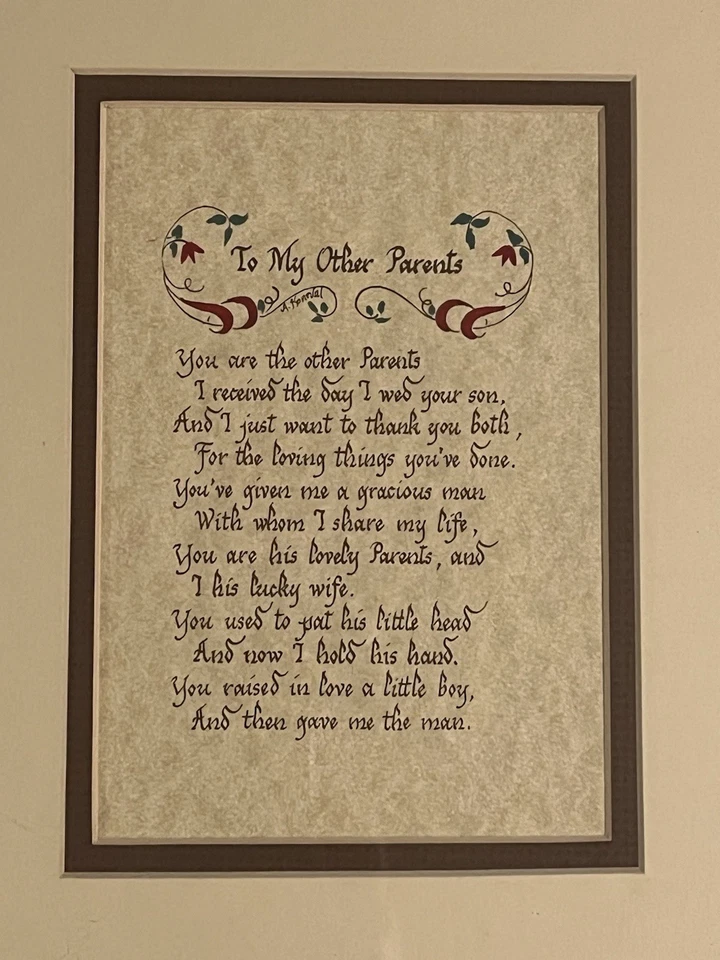 To My Other Parents
You are the other Parents
I received the day I wed your son,
And I just want to thank you both,
For the loving things you've done.
You've given me a gracious man
With whom I share my life,
You are his lovely Parents, and
I his lucky wife.
You used to pat his little head
And now I hold his hand.
You raised in love a little boy,
And then gave me the man.